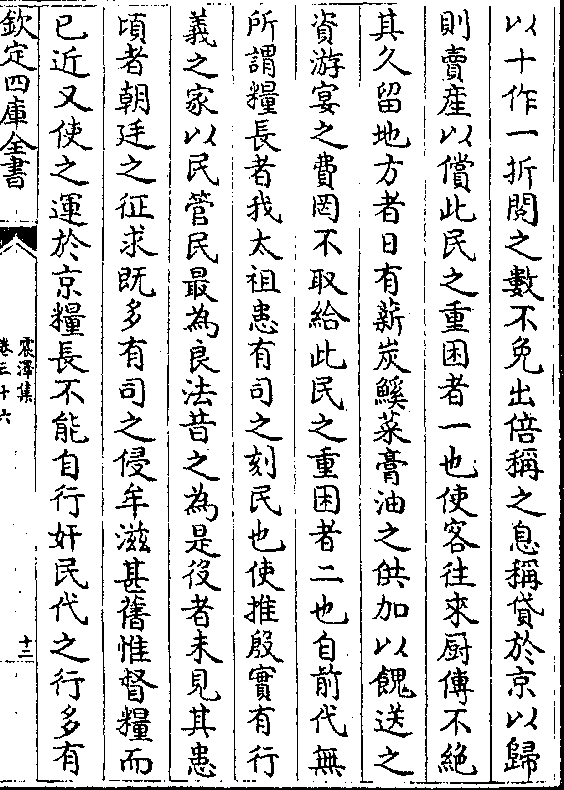 以十作一折閱之數不免出倍稱之息稱貸於京以歸
則賣產以償此民之重困者一也使客往來厨傳不絶
其久留地方者日有薪炭鰕菜膏油之供加以餽送之
資游宴之費罔不取給此民之重困者二也自前代無
所謂糧長者我太祖患有司之刻民也使推殷實有行
義之家以民管民最為良法昔之為是役者未見其患
頃者朝廷之征求既多有司之侵牟滋甚舊惟督糧而
已近又使之運於京糧長不能自行奸民代之行多有
欽定四庫全書
震澤集
卷三十六
十三